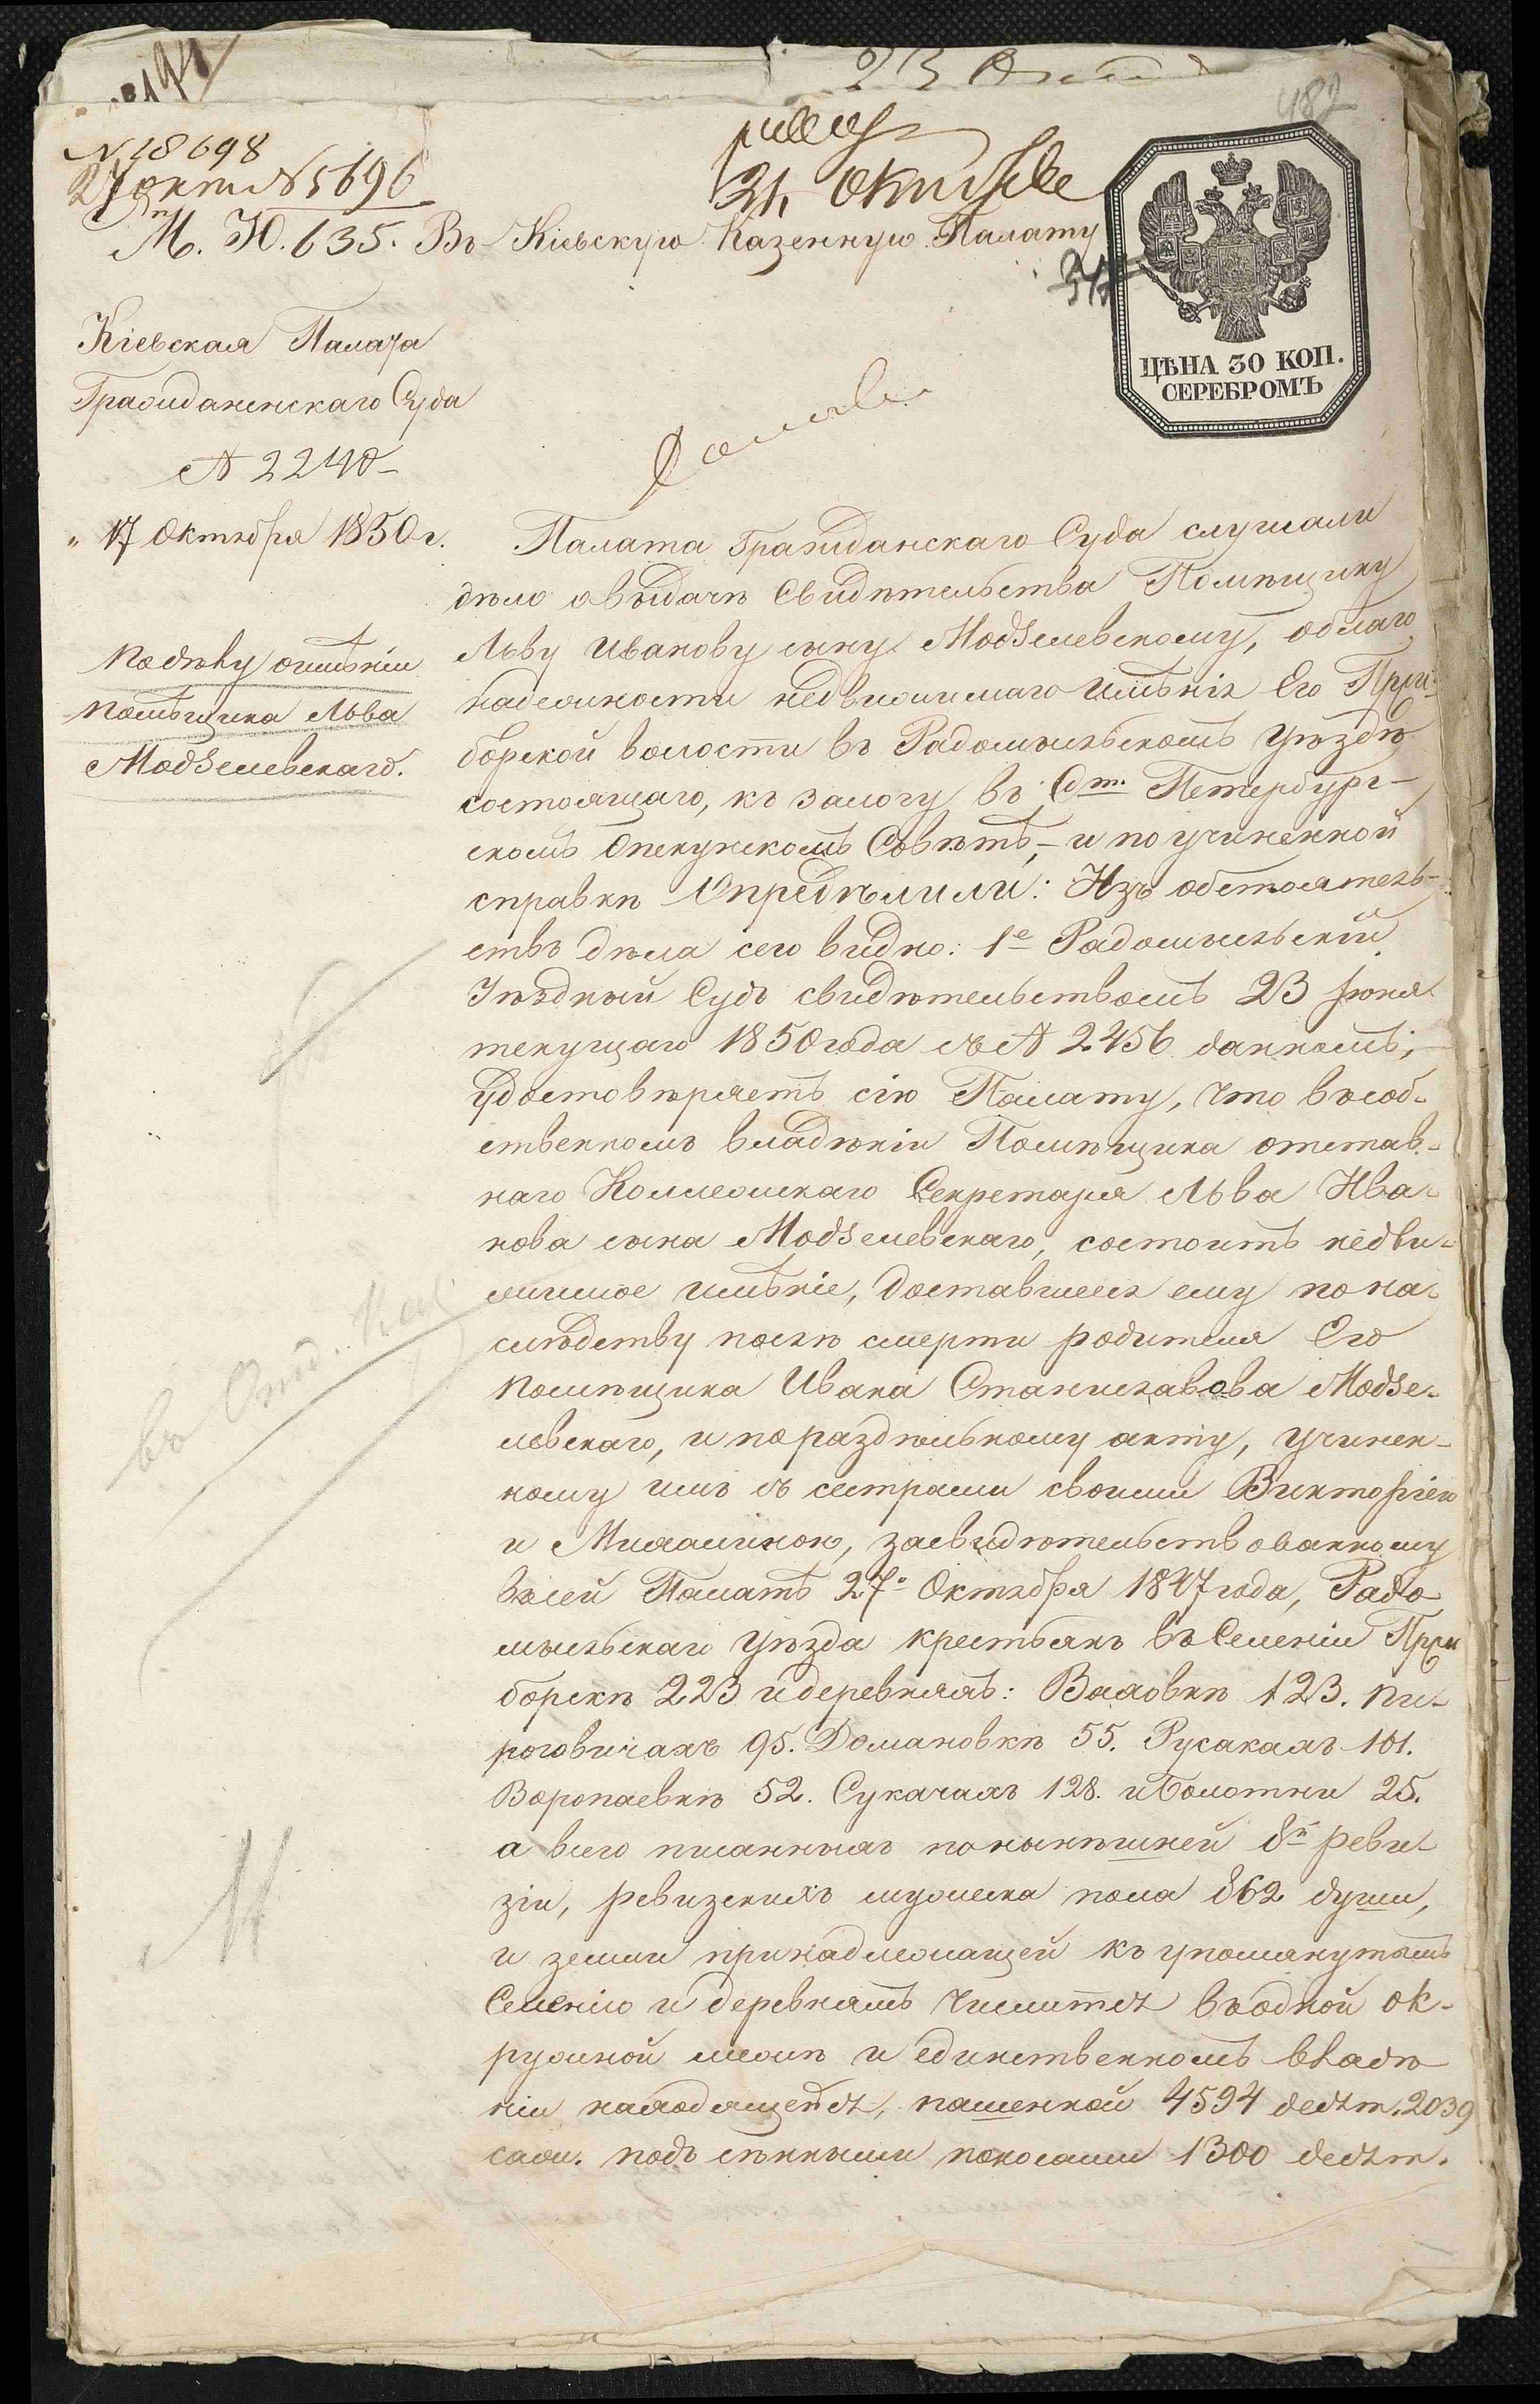 482
№ 18698
27 окт № 5696
31 Октября
М. Ю. 635. Въ Кіевскую Казенную Палату
ЦѢНА 30 КОП.
СЕРЕБРОМЪ
Кіевская Палата
Гражданскаго Суда
№ 2240
17 Октября 1850 г.
По дѣлу о имѣніи
помѣщика Льва
Модзелевскаго.
Палата Гражданскаго Суда слушали
дѣло о выдачѣ Свидѣтельства Помѣщику
Льву Иванову сыну Модзелевскому, о благо
надежности недвижимаго имѣнія Его При-
борской волости въ Радомысльскомъ Уѣздѣ
состоящаго, къ залогу въ Ст. Петербург-
скомъ Опекунскомъ Совѣтѣ, – и по учиненной
справкѣ Опредѣлили: Изъ обстоятель-
ствъ дѣла сего видно: 1е Радомысльскій
Уѣздный Судъ свидѣтельствомъ 23 Іюня
текущаго 1850 года съ № 2456 даннымъ,
удостовѣряетъ сію Палату, что въ соб-
ственномъ владѣніи Помѣщика отстав-
наго Коллежскаго Секретаря Льва Ива-
нова сына Модзелевскаго, состоитъ недви-
жимое имѣніе, доставшееся ему по на-
слѣдству послѣ смерти родителя Его
помѣщика Ивана Станиславова Модзе-
левскаго, и по раздѣльному акту, учинен-
ному имъ съ сестрами своими Викторіею
и Михалиною, засвидѣтельствованному
въ сей Палатѣ 27го Октября 1847 года, Радо
мысльскаго уѣзда крестьянъ въ Селеніи При
борскѣ 223 и деревняхъ:Ваховкѣ 123. Пи-
роговичахъ 95. Домановкѣ 55. Русакахъ 161.
Воропаевкѣ 52. Сукачахъ 128. и Болотни 25.
а всего писанныхъ по нынѣшней 8й реви-
зіи, ревизскихъ мужеска пола 862 души,
и земли принадлежащей къ упомянутымъ
Селенію и деревнямъ числится въ одной ок-
ружной межѣ и единственномъ владѣ
ніи находящейся, пашенной 4594 десят. 2039
саж. подъ сѣнными покосами 1300 десят.
въ Отд. Каз.